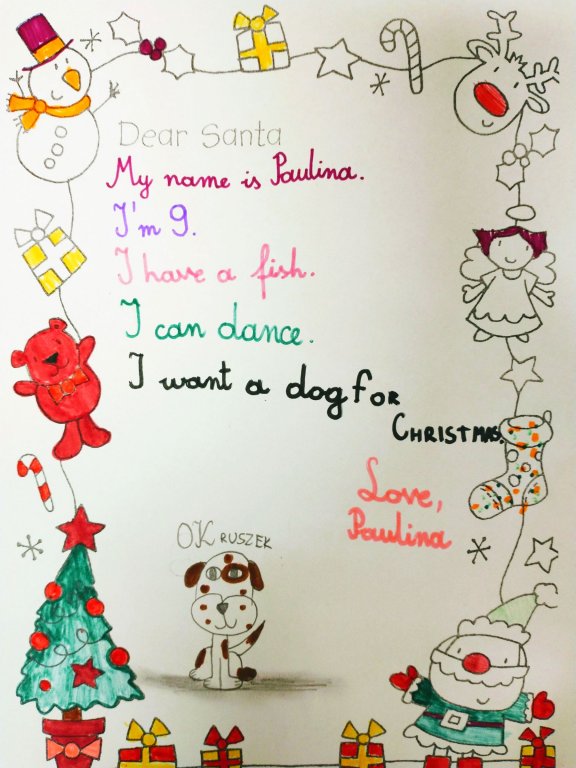 Dear Santa
My name is Paulina.
I'm 9.
I have a fish.
I can dance.
I want a dog for
CHRISTMAS.
Love,
Paulina
OKRUSZEK